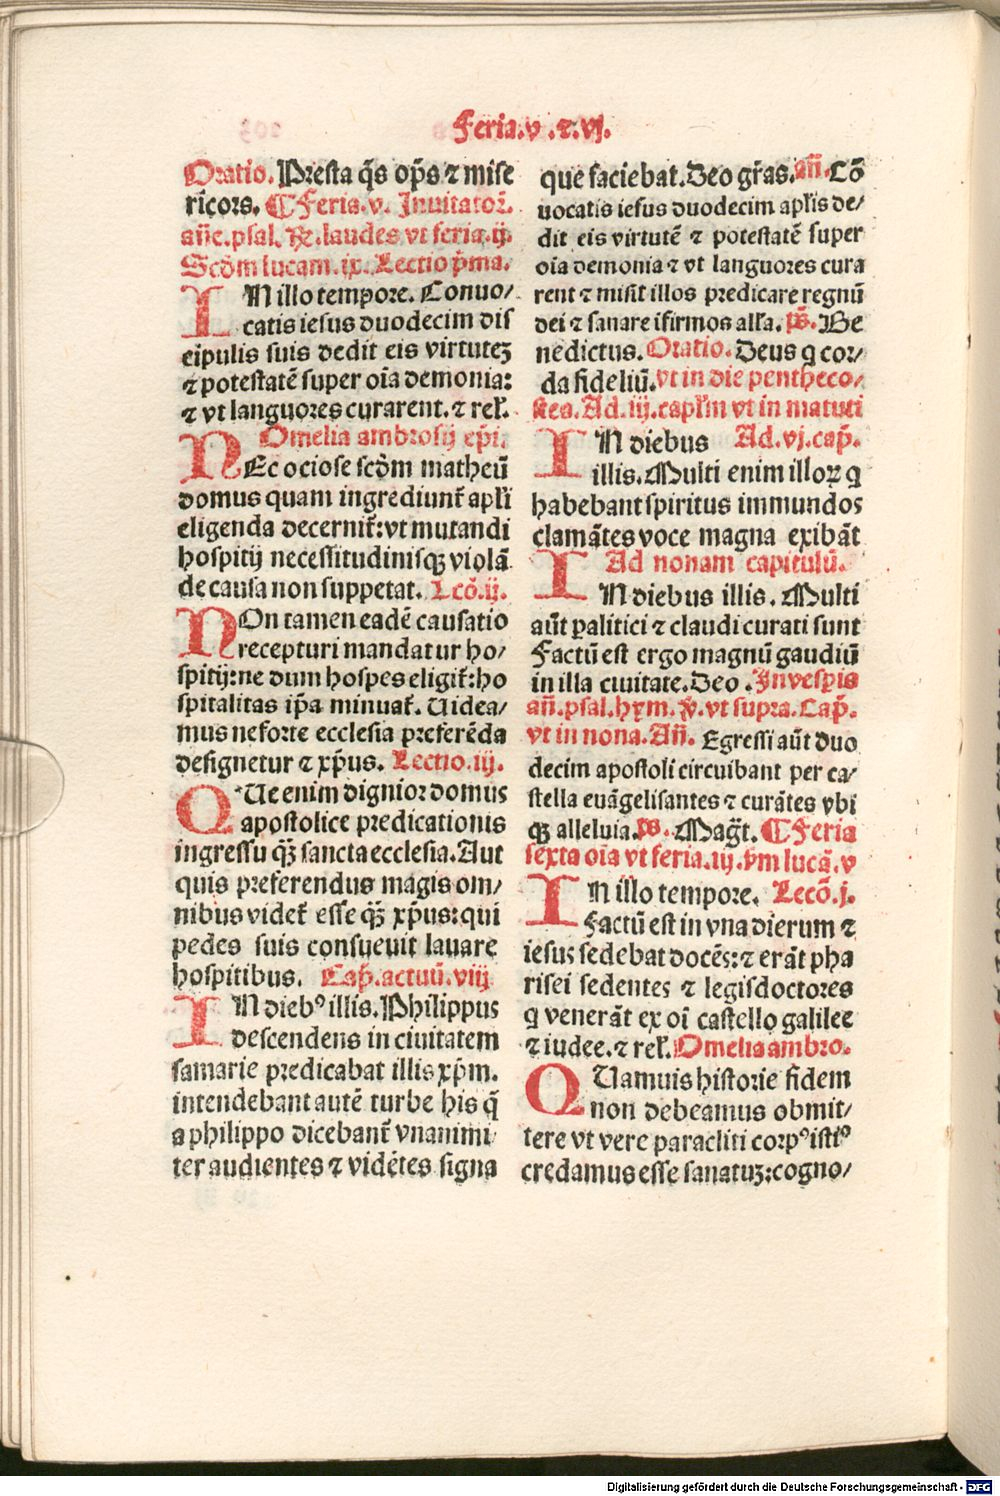 Feria.v .⁊.vj.
Oratio. Presta q̄s op̄s ⁊ mise
ricors. ¶ Feria.v. Inuitatoꝝ.
añe.psal. ꝶ. laudes vt feria.ij.
Scd̄m lucam.ix. Lectio p̄ma.
IN illo tempore. Conuo/
catis iesus duodecim dis
cipulis suis dedit eis virtuteꝫ
⁊ potestatē super oīa demonia:
⁊ vt languores curarent. ⁊ rel̄.
Omelia ambrosij ep̄i.
NEc ociose scd̄m matheū
domus quam ingrediunt̄ apl̄i
eligenda decernit̄: vt mutandi
hospitij necessitudinisqꝫ violā
de causa non suppetat. Lcō.ij.
NOn tamen eadē causatio
recepturi mandatur ho/
spitij: ne dum hospes eligit̄: ho
spitalitas ip̄a minuat̄. Uidea/
mus ne forte ecclesia preferēda
designetur ⁊ xp̄us. Lectio.iij.
QUe enim dignior domus
apostolice predicationis
ingressu qꝫ̄ sancta ecclesia. Aut
quis preferendus magis om/
nibus videt̄ esse qꝫ̄ xp̄us: qui
pedes suis consueuit lauare
hospitibus. Cap̄. actuū.viij
IN diebꝰ illis. Philippus
descendens in ciuitatem
samarie predicabat illis xp̄m.
intendebant autē turbe his q̄
a philippo dicebant̄ vnanimi
ter audientes ⁊ vidētes signa
que faciebat. Deo gr̄as. añ. Cō
uocatis iesus duodecim apl̄is de/
dit eis virtutē ⁊ potestatē super
oīa demonia ⁊ vt languores cura
rent ⁊ misit illos predicare regnū
dei ⁊ sanare īfirmos all̄a. p̄s. Be
nedictus. Oratio. Deus q cor/
da fideliū. vt in die pentheco/
stes. Ad.iij. capl̄m vt in matuti
IN diebus Ad.vj.cap̄.
illis. Multi enim illoꝝ q
habebant spiritus immundos
clamātes voce magna exibāt
Ad nonam capitulū.
IN diebus illis. Multi
aūt ꝑalitici ⁊ claudi curati sunt
Factū est ergo magnū gaudiū
in illa ciuitate. Deo. In vesꝑis
añ.psal.hym. ꝟ. vt supra. Cap̄.
vt in nona. Añ. Egressi aūt duo
decim apostoli circuibant per ca/
stella euāgelisantes ⁊ curātes vbi
qꝫ alleluia. p̄s. Maḡt. ¶ Feria
sexta oīa vt feria.iij. p̄m lucā.v
IN illo tempore. Lecō.j.
Factū est in vna dierum ⁊
iesus sedebat docēs: ⁊ erāt pha
risei sedentes ⁊ legisdoctores
q venerāt ex oī castello galilee
⁊ iudee. ⁊ rel̄. Omelia ambro.
QUamuis historie fidem
non debeamus obmit/
tere vt vere paracliti corpꝰ istiꝰ
credamus esse sanatuꝫ: cogno/
Digitalisierung gefördert durch die Deutsche Forschungsgemeinschaft - DFG